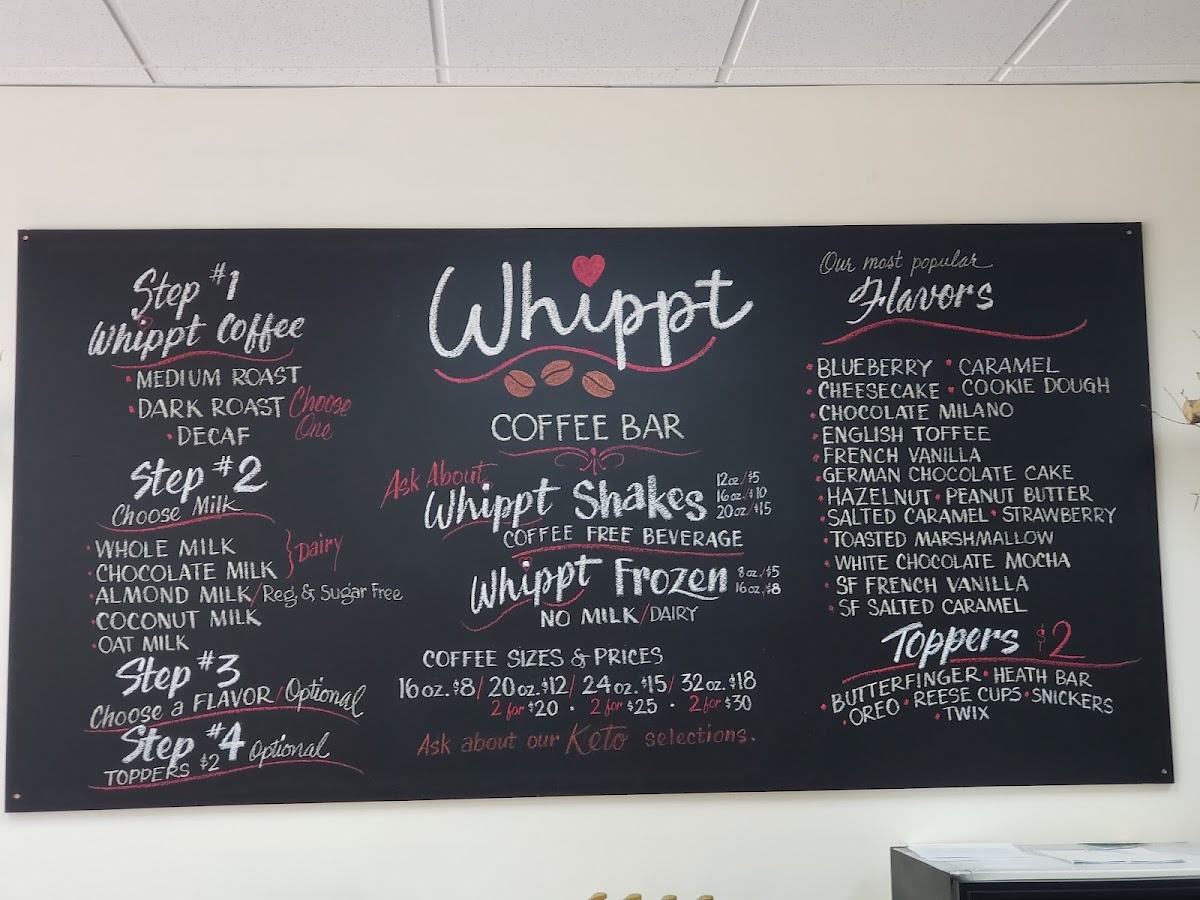 Step #1
Whippt Coffee
• MEDIUM ROAST
• DARK ROAST Choose One
• DECAF
Step #2
Choose Milk
• WHOLE MILK
• CHOCOLATE MILK } Dairy
• ALMOND MILK / Reg. & Sugar Free
• COCONUT MILK
• OAT MILK
Step #3
Choose a FLAVOR / Optional
Step #4 Optional
TOPPERS $2
Whippt
COFFEE BAR
Ask About
Whippt Shakes
12oz./$5
16oz./$10
20oz./$15
COFFEE FREE BEVERAGE
Whippt Frozen
8oz./$5
16oz./$8
NO MILK/DAIRY
COFFEE SIZES & PRICES
16oz. $8/ 20oz. $12/ 24oz. $15/ 32oz. $18
2 for $20 • 2 for $25 • 2 for $30
Ask about our Keto selections.
Our most popular
Flavors
• BLUEBERRY • CARAMEL
• CHEESECAKE • COOKIE DOUGH
• CHOCOLATE MILANO
• ENGLISH TOFFEE
• FRENCH VANILLA
• GERMAN CHOCOLATE CAKE
• HAZELNUT • PEANUT BUTTER
• SALTED CARAMEL • STRAWBERRY
• TOASTED MARSHMALLOW
• WHITE CHOCOLATE MOCHA
• SF FRENCH VANILLA
• SF SALTED CARAMEL
Toppers $2
• BUTTERFINGER • HEATH BAR
• OREO • REESE CUPS • SNICKERS
• TWIX